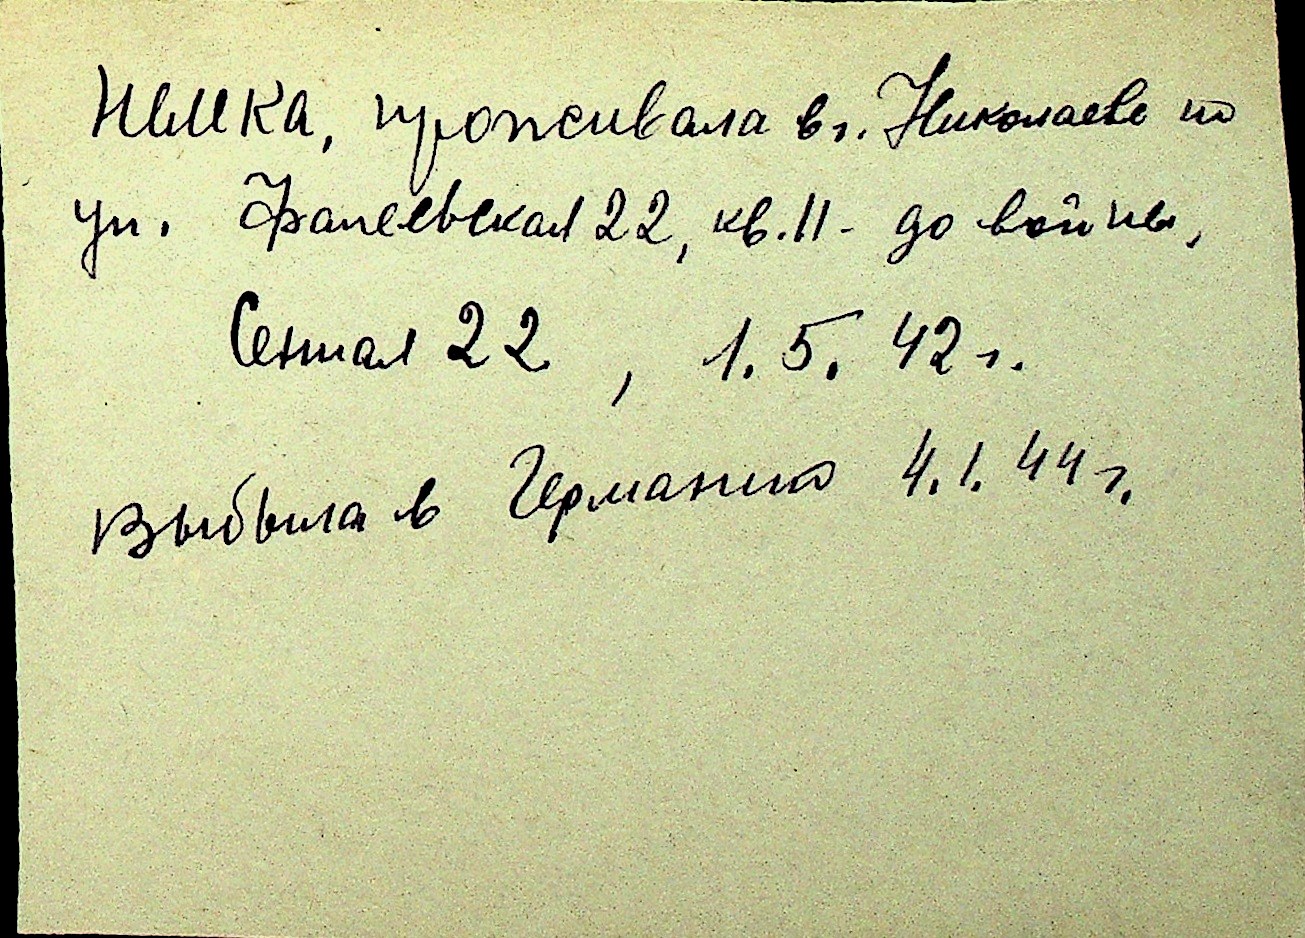 немка, проживала в г. Николаеве по
ул. Фалеевская 22, кв. 11 - до войны,
Сенная 22, 1.5.42 г.
выбыла в Германию 4.1.44 г.